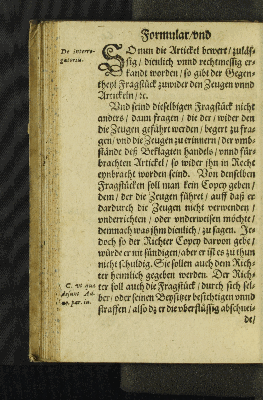 Formular/vnd
De interro-
gatoriis.
SO nun die Artickel bewert/zuläs-
sig/dienlich vnnd rechtmessig er-
kandt worden/so gibt der Gegen-
theyl Fragstück zuwider den Zeugen vnnd
Artickeln/ꝛc.
Vnd seind dieselbigen Fragstück nicht
anders/dann fragen/die der/wider den
die Zeugen geführt werden/begert zu fra-
gen/vnd die Zeugen zu erinnern/der vmb-
stände deß Beklagten handels/vnnd für-
brachten Artickel/so wider jhn in Recht
eynbracht worden seind. Von denselben
Fragstücken soll man kein Copey geben/
dem/der die Zeugen führet/auff daß er
dardurch die Zeugen nicht verwenden/
vnderrichten/oder vnderweisen möchte/
demnach was jhm dienlich/zu sagen. Je-
doch so der Richter Copey darvon gebe/
würde er nit sündigen/aber er ist es zu thun
nicht schuldig. Sie sollen auch dem Rich-
ter heymlich gegeben werden. Der Rich-
ter soll auch die Fragstück/durch sich sel-
ber/oder seinen Beysitzer besichtigen vnnd
straffen/also dz er die vberflüssig abschnei-
de/